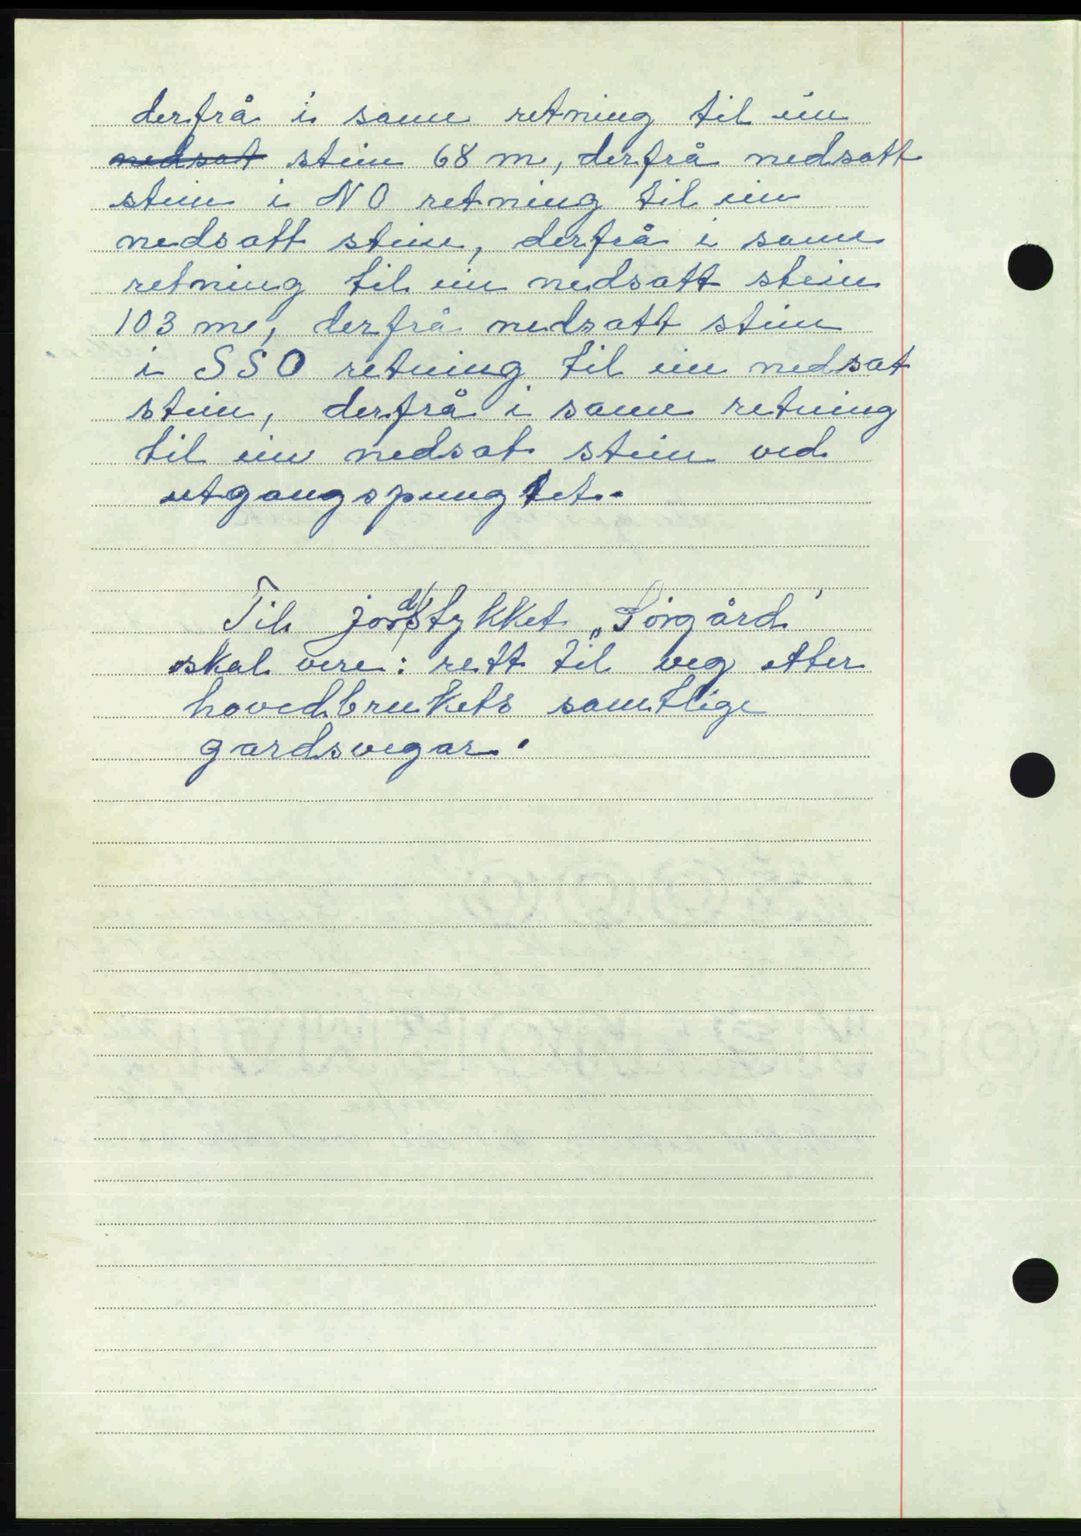 derfrå i same retning til ein
nedsat stein 68 m, derfrå nedsatt
stein i NO retning til ein
nedsatt stein, derfrå i same
retning til ein nedsatt stein
103 m, derfrå nedsatt stein
i SSO retning til ein nedsat
stein, derfrå i same retning
til ein nedsat stein ved
utgangspungtet.
Til jordstykket „Sörgård"
skal vere: rett til veg etter
hovedbrukets samtlige
gardsvegar.